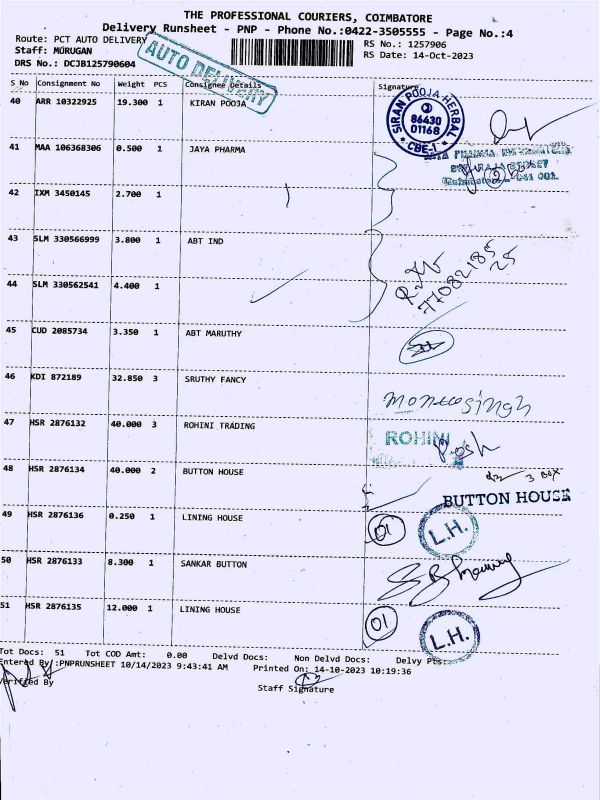 THE PROFESSIONAL COURIERS, COIMBATORE
Delivery Runsheet - PNP - Phone No.:0422-3505555 - Page No.:4
Route: PCT AUTO DELIVERY
RS No.: 1257906
Staff: MURUGAN
RS Date: 14-Oct-2023
DRS No.: DCJB125790604
AUTO DELIVERY
S No Consignment No Weight PCS Consignee Details Signature
40 ARR 10322925 19.300 1 KIRAN POOJA
SIRAN POOJA HERBAL
86430
01168
CBE-1
41 MAA 106368306 0.500 1 JAYA PHARMA
42 IXM 3450145 2.700 1
43 SLM 330566999 3.800 1 ABT IND
44 SLM 330562541 4.400 1
45 CUD 2085734 3.350 1 ABT MARUTHY
46 KDI 872189 32.850 3 SRUTHY FANCY
singh
47 HSR 2876132 40.000 3 ROHINI TRADING
ROHINI
48 HSR 2876134 40.000 2 BUTTON HOUSE
3 BOX
BUTTON HOUSE
49 HSR 2876136 0.250 1 LINING HOUSE
01 L.H.
50 HSR 2876133 8.300 1 SANKAR BUTTON
51 HSR 2876135 12.000 1 LINING HOUSE
01 L.H.
Tot Docs: 51 Tot COD Amt: 0.00 Delvd Docs: Non Delvd Docs: Delvy Pts:
Entered By :PNPRUNSHEET 10/14/2023 9:43:41 AM Printed On: 14-10-2023 10:19:36
Verified By
Staff Signature